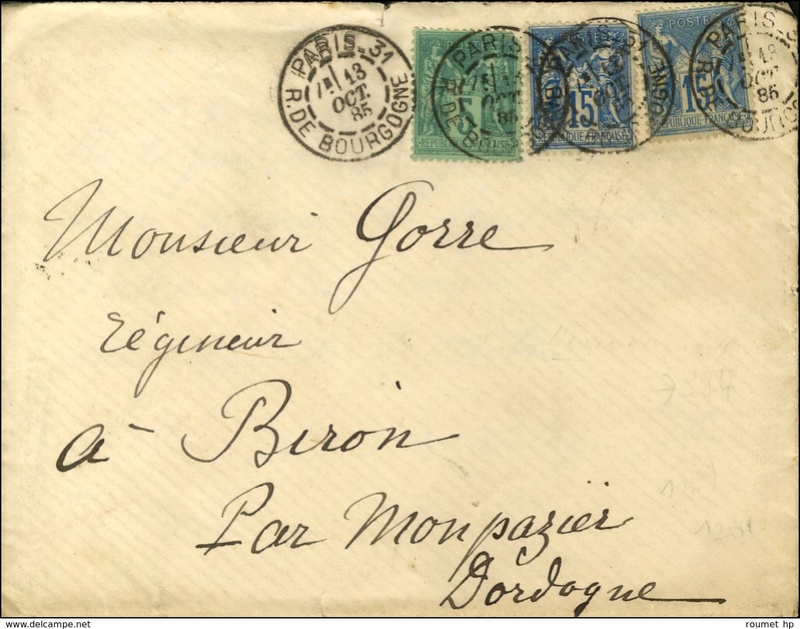 PARIS-31
13
OCT.
85
R. DE BOURGOGNE
PARIS
85
R. DE BO
5
15
RÉPUBLIQUE FRANÇAISE
POSTES
15
RÉPUBLIQUE FRANÇAISE
PARIS
13
OCT
85
Monsieur Gorre
Régineur
à Biron
Par Monpazier
Dordogne
www.delcampe.net
roumet hp